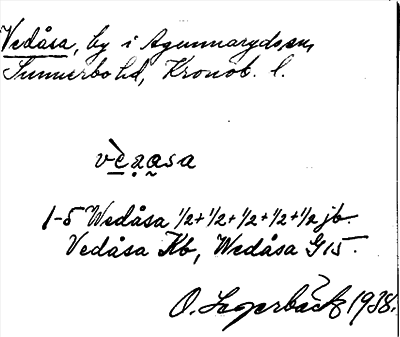 Vedåsa, by i Agunnaryds sn,
Sunnerbo hd, Kronob. l.
vèẓa̰sa
1-5 Wedåsa 1/2+1/2+1/2+1/2+1/2 jb.
Vedåsa Kb, Wedåsa G15.
O. Lagerbäck 1938.